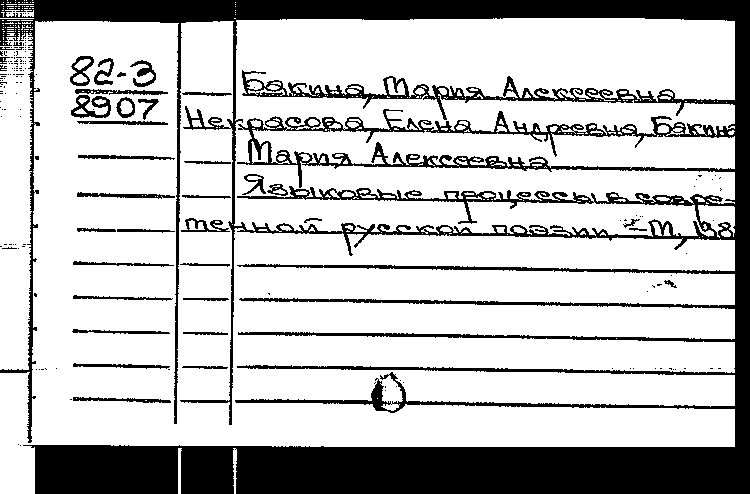 82-3
8907
Бакина, Мария Алексеевна,
Некрасова, Елена Андреевна, Бакина
Мария Алексеевна
Языковые процессы в совре-
менной русской поэзии. - М., 198